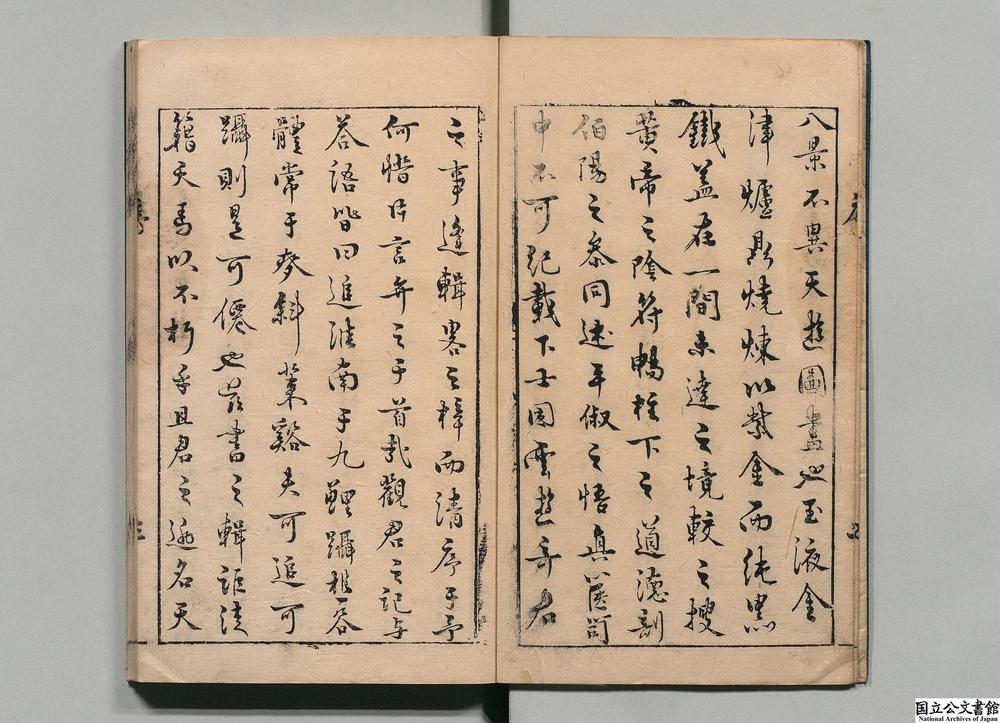 八景不異天造圖畫也玉液金
津爐鼎燒煉以紫金而純黑
鐵盖在一間未達之境較之搜
黄帝之陰符暢柱下之道德剖
伯陽之參同述平俶之悟真
中不可紀載下士固
之事逢輯畧之梓而請序于予
何惜片言弁之于首觀君之記与
答語皆曰進淮南于九鯉躡
體常于麥斜藁谿夫可追可
躡則是可僊也茲書之輯詎徒
藉天馬以不朽乎且君之遜名天
序
三
国立公文書館
National Archives of Japan